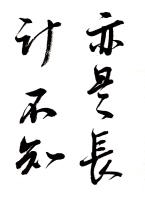 亦是長
計不知